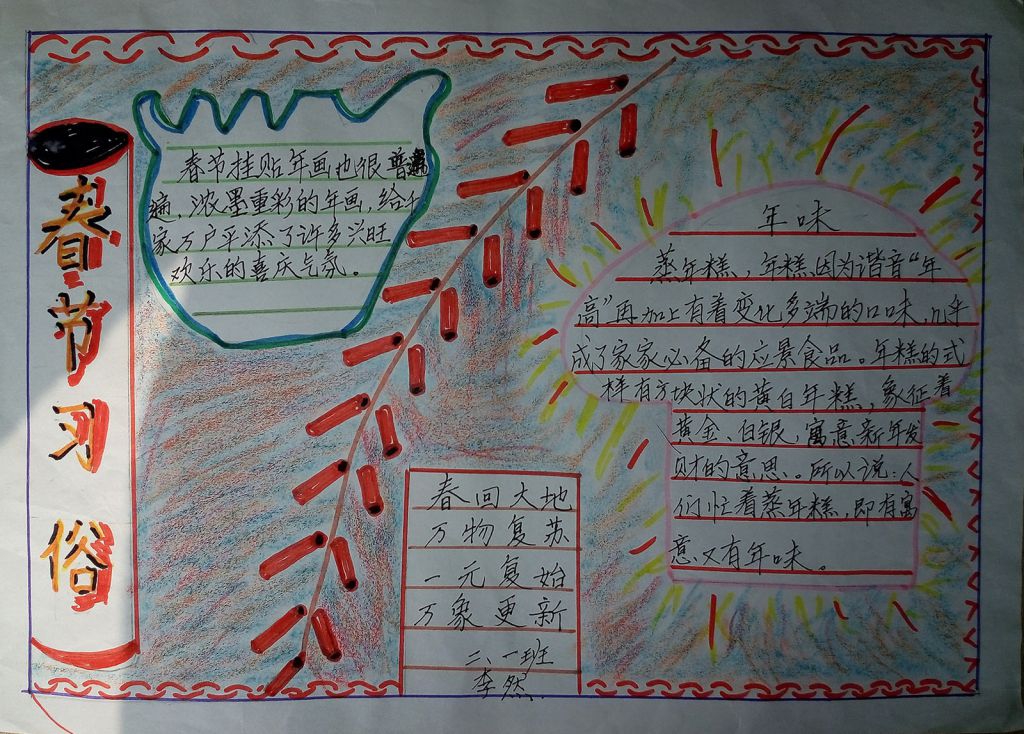 春节习俗
春节挂贴年画也很普遍
遍，浓墨重彩的年画，给千
家万户平添了许多兴旺
欢乐的喜庆气氛。
年味
蒸年糕，年糕因为谐音“年
高”再加上有着变化多端的口味，几乎
成了家家必备的应景食品。年糕的式
样有方块状的黄白年糕，象征着
黄金、白银，寓意新年发
财的意思。所以说：人
们忙着蒸年糕，即有寓
意又有年味。
春回大地
万物复苏
一元复始
万象更新
二、一班
李然